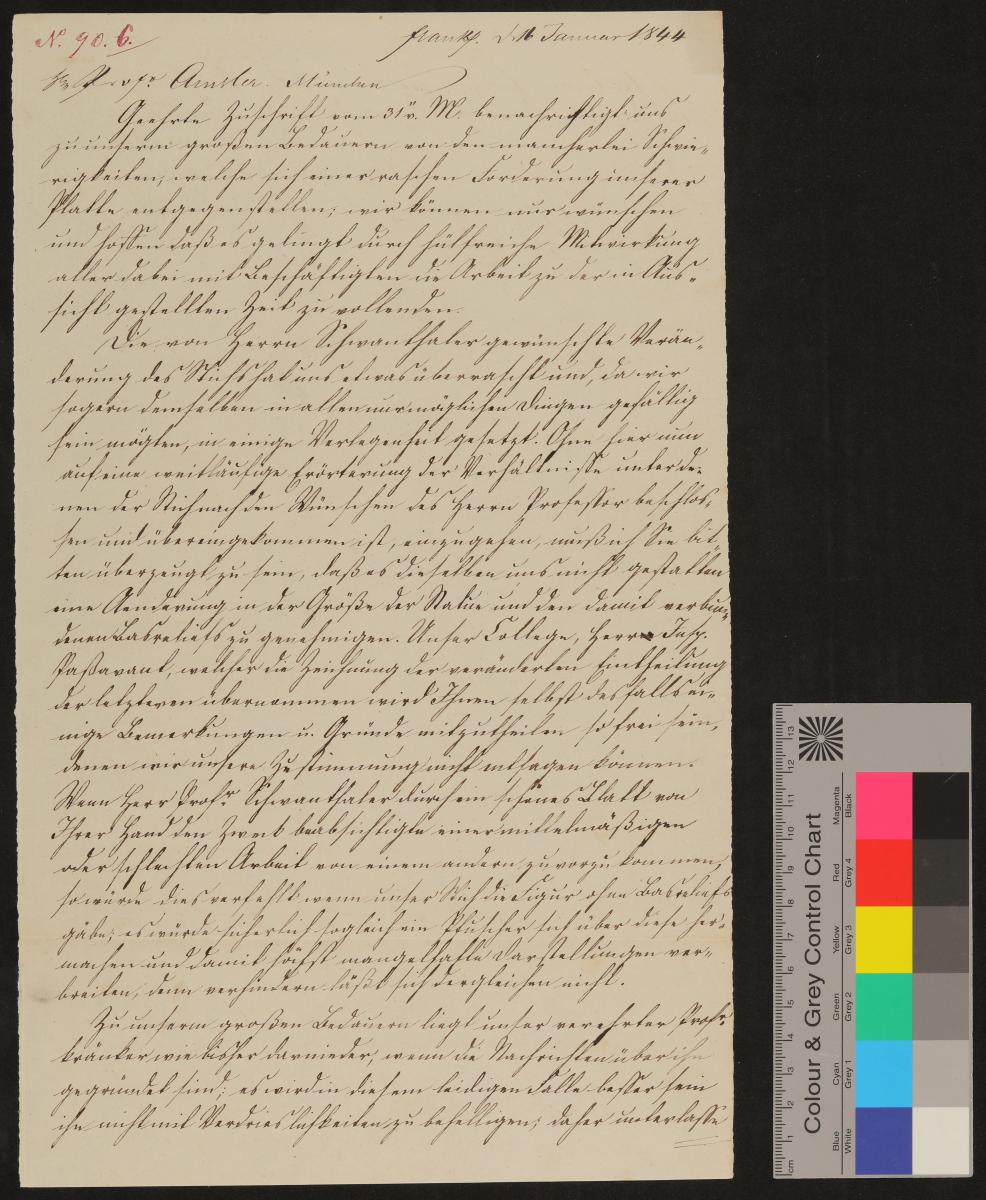 N. 90. 6.
Frankf. d. 16 Januar 1844
Hr Profr. Amsler. München
Geehrte Zuschrift vom 31 v. M. benachrichtigt uns
zu unserm großen Bedauern von den mancherlei Schwie-
rigkeiten, welche sich einer raschen Förderung unserer
Platte entgegenstellen; wir können nur wünschen
und hoffen daß es gelingt durch hülfreiche Mitwirkung
aller dabei mit Beschäftigten die Arbeit zu der in Aus-
sicht gestellten Zeit zu vollenden.
Die von Herrn Schwanthaler gewünschte Verän-
derung des Stichs hat uns etwas überrascht und, da wir
so gern demselben in allen nur möglichen Dingen gefällig
sein mögten, in einige Verlegenheit gesetzt. Ohne hier nun
auf eine weitläufige Erörterung der Verhältnisse unter de-
nen der Stich nach den Wünschen des Herrn Professor beschlos-
sen und übereingekommen ist, einzugehen, muß ich Sie bit-
ten überzeugt zu sein, daß es dieselben uns nicht gestatten
eine Aenderung in der Größe der Statue und den damit verbun-
denen Basreliefs zu genehmigen. Unser College, Herr Insp.
Passavant, welcher die Zeichnung der veränderten Eintheilung
der letzteren übernommen wird Ihnen selbst desfalls ei-
nige Bemerkungen u. Gründe mitzutheilen so frei sein,
denen wir unsere Zustimmung nicht entsagen können.
Wenn Herr Profr Schwanthaler durch ein schönes Blatt von
Ihrer Hand den Zweck beabsichtigte einer mittelmäßigen
oder schlechten Arbeit von einem andern zuvorzukommen,
so würde dies verfehlt wenn unser Stich die Figur ohne Basreliefs
gäbe; es würde sicherlich sogleich ein Pfuscher sich über diese her-
machen und damit höchst mangelhafte Darstellungen ver-
breiten, denn verhindern läßt sich dergleichen nicht.
Zu unserm großen Bedauern liegt unser verehrter Profr.
kränker wie bisher darnieder, wenn die Nachrichten über ihn
gegründet sind; es wird in diesem leidigen Falle besser sein
ihn nicht mit Verdrieslichkeiten zu behelligen; daher unterlasse
Colour & Grey Control Chart
Blue Cyan Green Yellow Red Magenta
White Grey 1 Grey 2 Grey 3 Grey 4 Black
cm 1 2 3 4 5 6 7 8 9 10 11 12 13